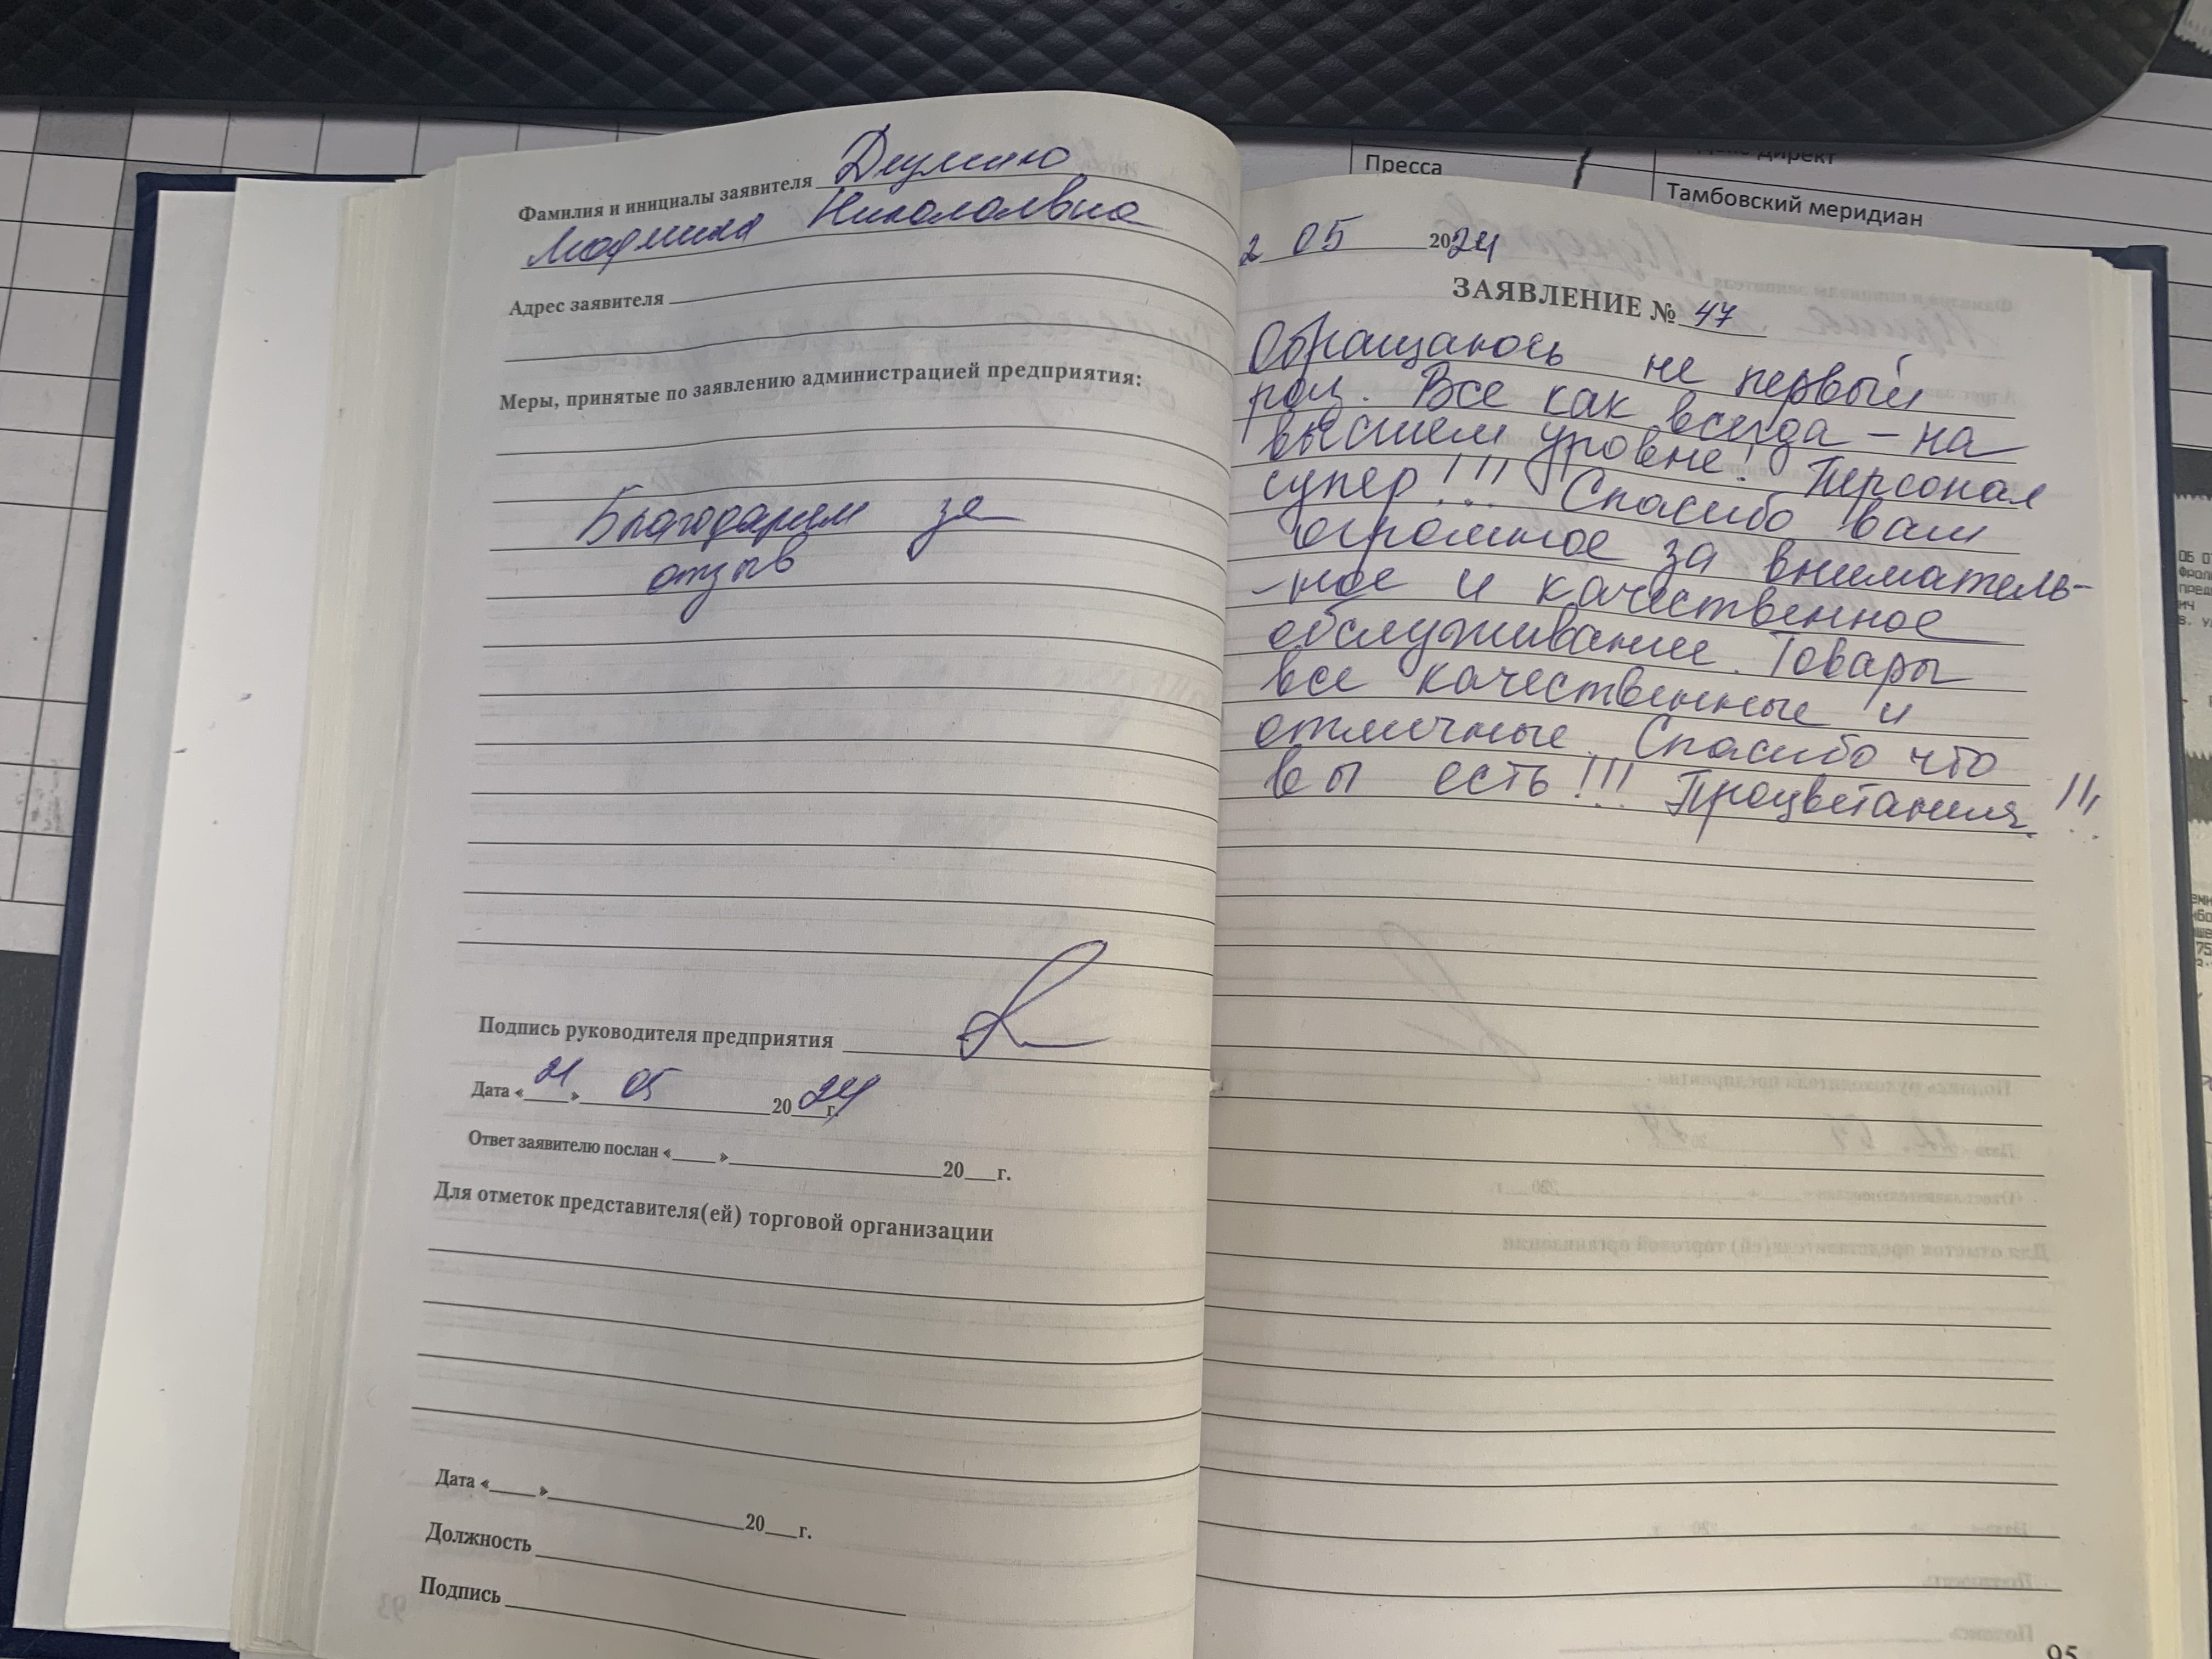 Фамилия и инициалы заявителя
Николаевна
Адрес заявителя
Меры, принятые по заявлению администрацией предприятия:
Благодарим за
отзыв
Подпись руководителя предприятия
Дата «21» 05 2024 г.
Ответ заявителю послан «____»____20___г.
Для отметок представителя(ей) торговой организации
Дата «____»____20___г.
Должность
Подпись
Пресса
директ
Тамбовский меридиан
2 05 2024
ЗАЯВЛЕНИЕ № 47
Обращаюсь не первый
раз. Все как всегда – на
высшем уровне! Персонал
супер!!! Спасибо вам
огромное за вниматель-
-ное и качественное
обслуживание. Товары
все качественные и
отличные. Спасибо что
вы есть!!! Процветания!!!
95